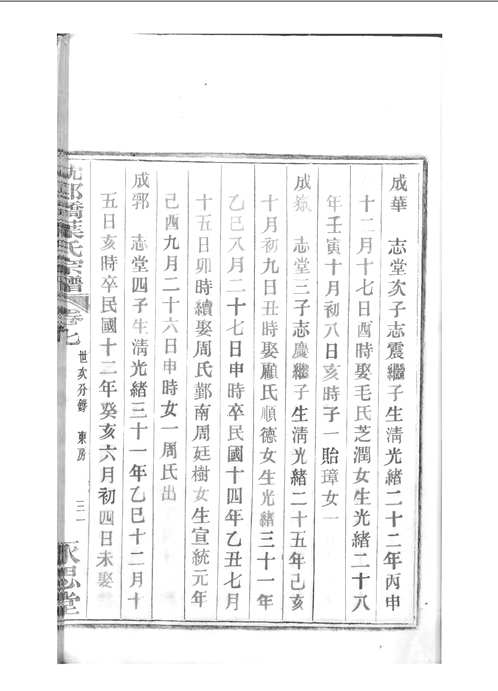 成華　志堂次子志震繼子生淸光緒二十二年丙申
十二月十七日酉時娶毛氏芝潤女生光緒二十八
年壬寅十月初八日亥時子一貽璋女一
成　志堂三子志慶繼子生淸光緒二十五年己亥
十月初九日丑時娶顧氏順德女生光緒三十一年
乙巳八月二十七日申時卒民國十四年乙丑七月
十五日卯時續娶周氏鄞南周廷樹女生宣統元年
己酉九月二十六日申時女一周氏出
成郭　志堂四子生淸光緒三十一年乙巳十二月十
五日亥時卒民國十二年癸亥六月初四日未娶
郎橋葉氏宗譜　卷七　世次分錄　東房　永思堂